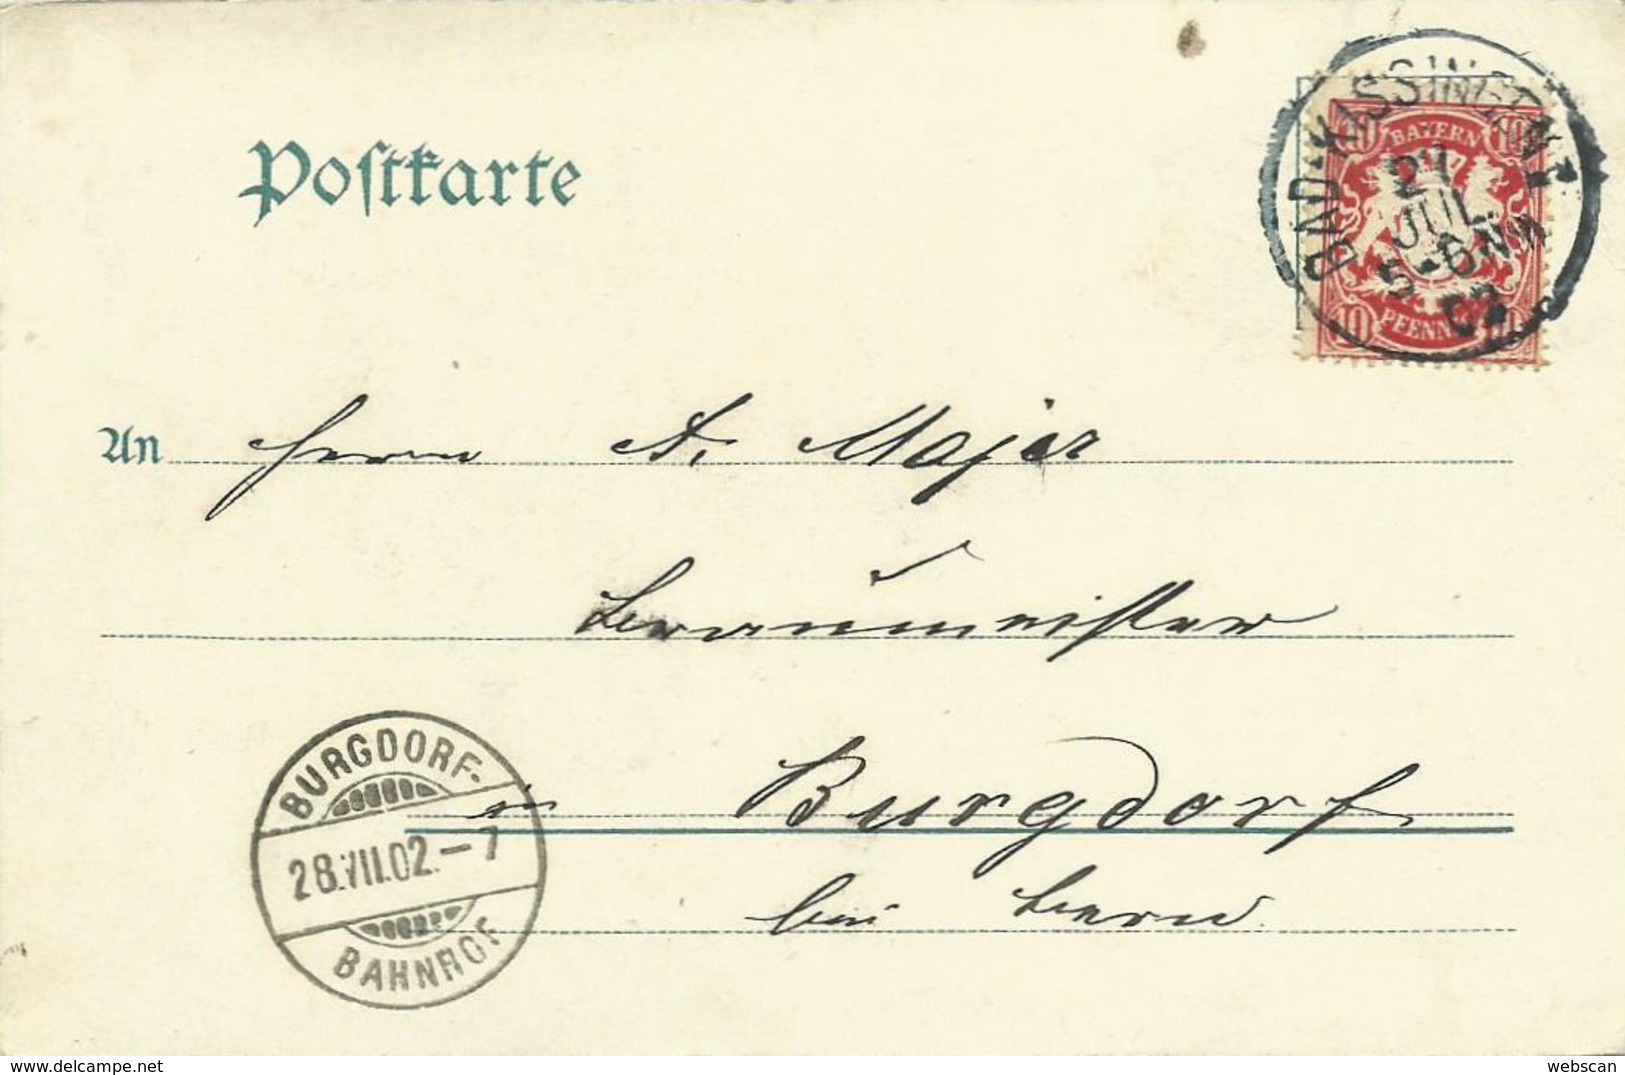 Postkarte
BAD KISSINGEN 1
27
JUL.
5-6NM
02
10 BAYERN 10
10 PFENNIG
An Herrn A. Majer
Braumeister
in Burgdorf
bei Bern
BURGDORF-
28.VII.02.-7
BAHNHOF
www.delcampe.net
webscan